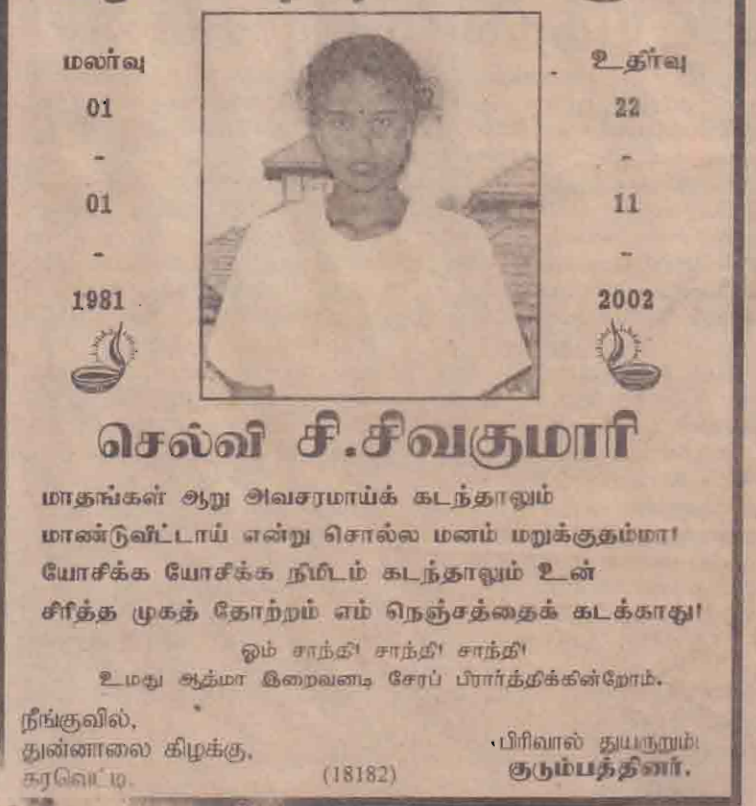 மலர்வு
01
-
01
-
1981
உதிர்வு
22
-
11
-
2002
செல்வி சி.சிவகுமாரி
மாதங்கள் ஆறு அவசரமாய்க் கடந்தாலும்
மாண்டுவிட்டாய் என்று சொல்ல மனம் மறுக்குதம்மா!
யோசிக்க யோசிக்க நிமிடம் கடந்தாலும் உன்
சிரித்த முகத் தோற்றம் எம் நெஞ்சத்தைக் கடக்காது!
ஓம் சாந்தி! சாந்தி! சாந்தி!
உமது ஆத்மா இறைவனடி சேரப் பிரார்த்திக்கின்றோம்.
நீங்குவில்,
துன்னாலை கிழக்கு,
கரவெட்டி.
(18182)
பிரிவால் துயருறும்
குடும்பத்தினர்.